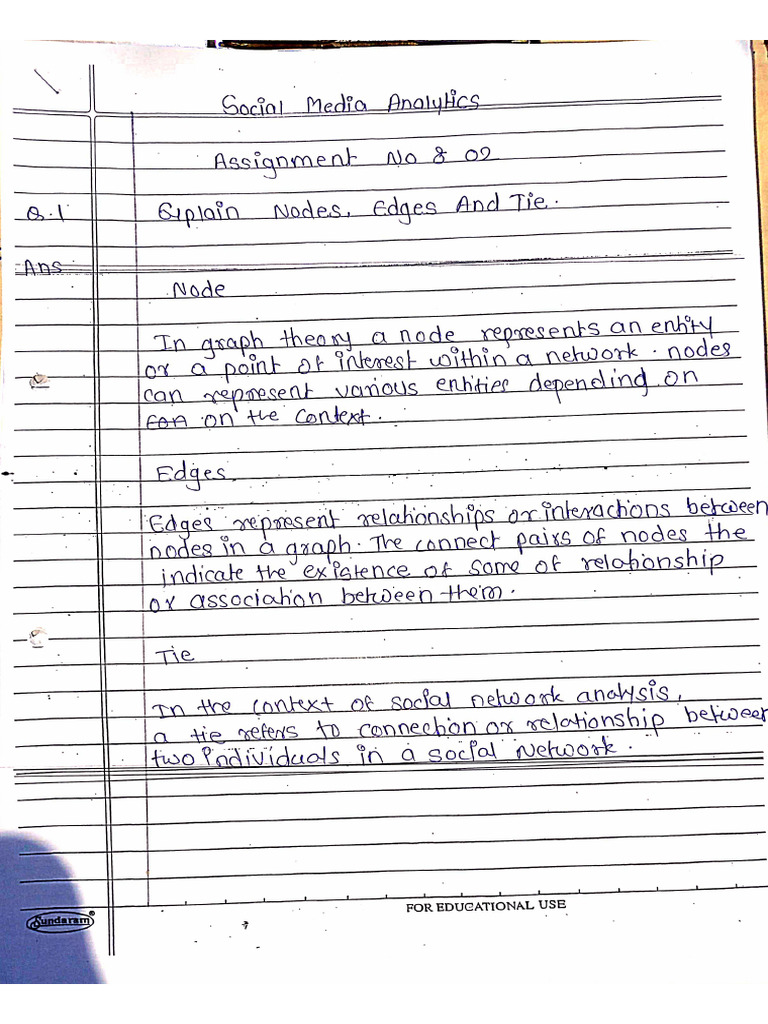 Social Media Analytics
Assignment No 8 02
Q.1 Explain Nodes, Edges And Tie.
Ans
Node
In graph theory a node represents an entity
or a point of interest within a network. nodes
can represent various entities depending on
on the context.
Edges
Edges represent relationships or interactions between
nodes in a graph. The connect pairs of nodes the
indicate the existence of some of relationship
or association between them.
Tie
In the context of social network analysis,
a tie refers to connection or relationship between
two individuals in a social network.
FOR EDUCATIONAL USE
Sundaram®